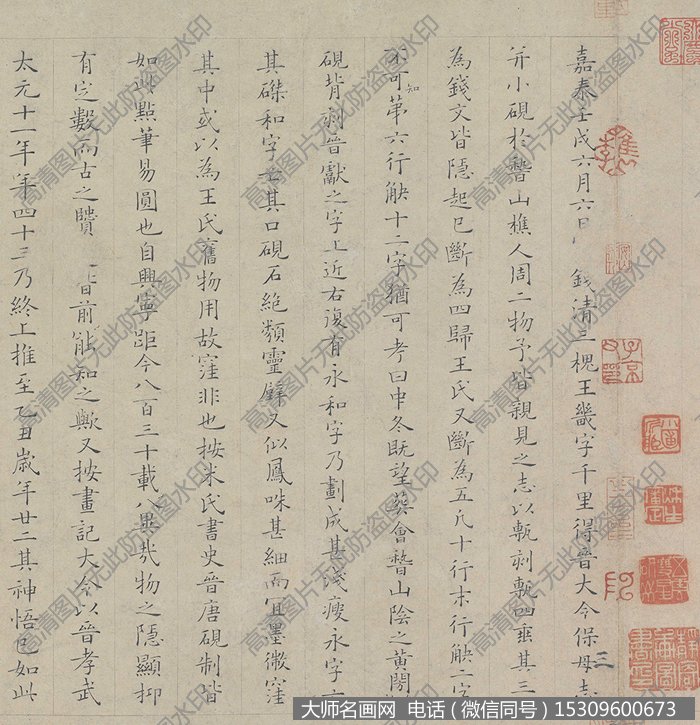 嘉泰壬戌六月六日錢清三槐王畿字千里得晉大令保母志
并小硯於嵇山樵人周二物予皆親見之志以甎刻甎四垂其三
為錢文皆隱起已斷為四歸王氏又斷為五凡十行末行缺二字
不可知第六行缺十二字猶可考曰中冬既望葬會嵇山陰之黃閍
硯背刻晉獻之字上近右復有永和字乃劃成甚淺瘦永字
其磔和字其口硯石絶類靈壁又似鳳咮甚細而宜墨微窪
其中或以為王氏舊物用故窪非也按米氏書史晉唐硯制皆
如此點筆易圓也自興寧距今八百三十載八異哉物之隱顯抑
有定數而古之賢昔前能知之歟又按畫記大令以晉孝武
太元十一年年四十三乃終上推至乙丑歲年廿二其神悟已如此
高清图片无此防盗图水印
大师名画网 电话（微信同号）15309600673